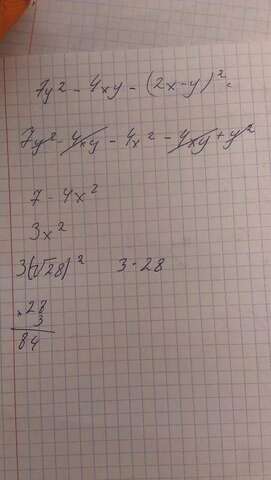 7y² - 4xy - (2x-y)² =
7y² - 4xy - 4x² - 4xy + y²
7 - 4x²
3x²
3(√28)² 3 · 28
× 28
3
84